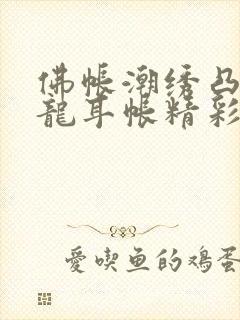 佛帳潮绣凸
龍耳帐精彩
愛喫鱼的鸡蛋